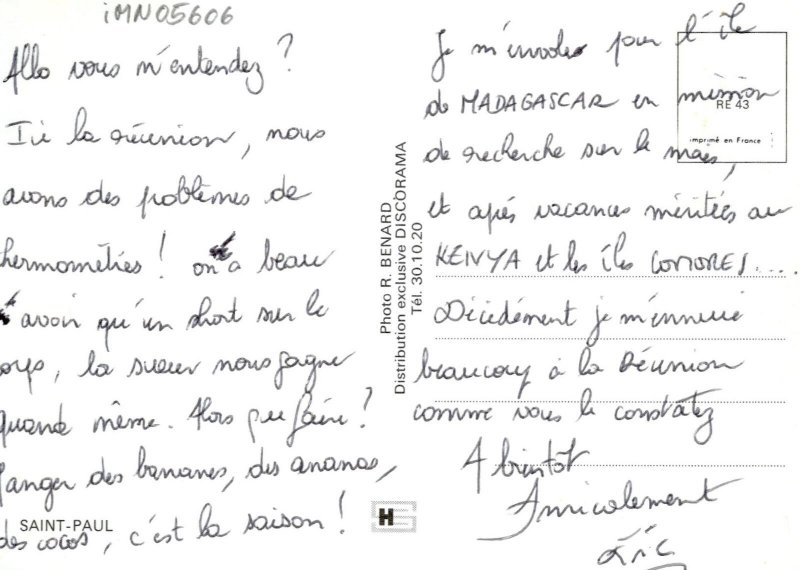 iMN05606
Allo vous m'entendez ?
Ici la réunion, nous
avons des problèmes de
hermométries ! on a beau
avoir qu'un short sur le
orps, la sueur nous gagne
quand même. Alors que faire ?
anger des bananes, des ananas,
des cocos, c'est la saison !
SAINT-PAUL
Photo R. BENARD
Distribution exclusive DISCORAMA
Tél. 30.10.20
H
Je m'envole pour l'île
de MADAGASCAR en mission
RE 43
Imprimé en France
de recherche sur le maïs,
et après vacances méritées au
KENYA et les îles COMORES....
Décidément je m'ennuie
beaucoup à la Réunion
comme vous le constatez
A bientôt
Amicalement
Éric